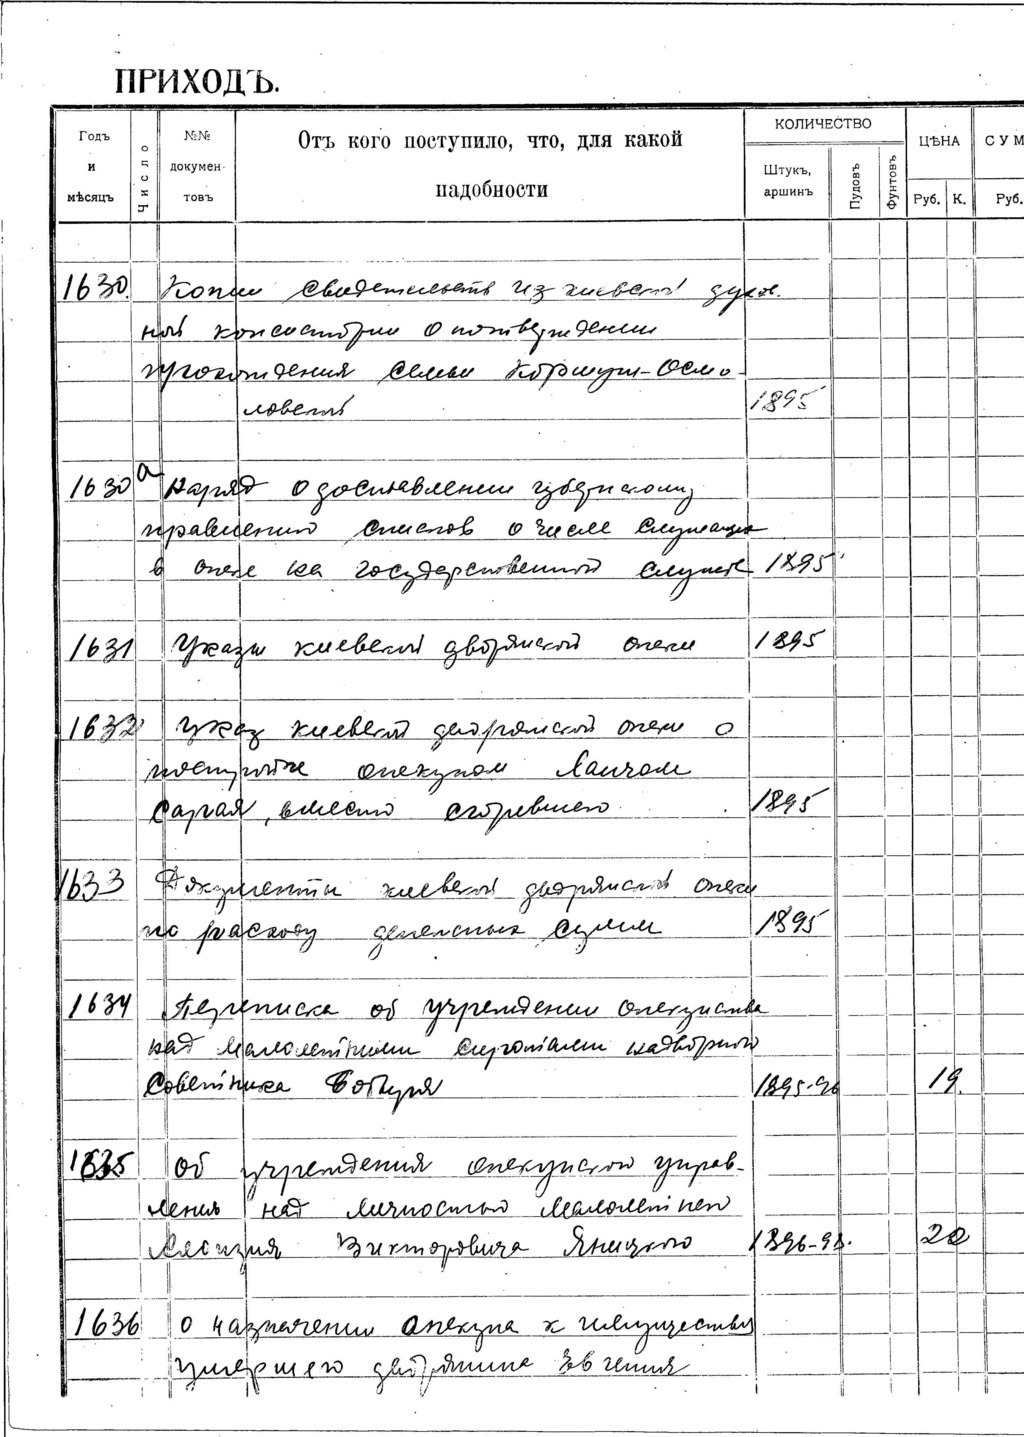 ПРИХОДЪ.
Годъ и мѣсяцъ
Число
№№ документовъ
Отъ кого поступило, что, для какой надобности
КОЛИЧЕСТВО
Штукъ, аршинъ
Пудовъ
Фунтовъ
ЦѢНА
Руб. К.
СУМ
Руб.
1630. Копии свидетельств из киевской духов.
ной консистории о потверждении
происхождения семьи Коршун-Осмо-
ловской 1895
1630а Наряд о доставлении губернскому
правлению списков о числе служащих
в опеке на государственной службе 1895
1631 Указы киевской дворянской опеки 1895
1632 Указ киевской дворянской опеки о
постройке опекуном
сарая, вместо сгоревшего 1895
1633 Документы киевской дворянской опеки
по расходу денежных сумм 1895
1634 Переписка об учреждении опекунства
над малолетними сиротами надворного
советника 1895-96 19.
1635 Об учреждения опекунского управ-
ления над личностью малолетнего
Алоизия Викторовича Яницкого 1896-98. 20
1636 О назначении опекуна к имуществу
умершего дворянина